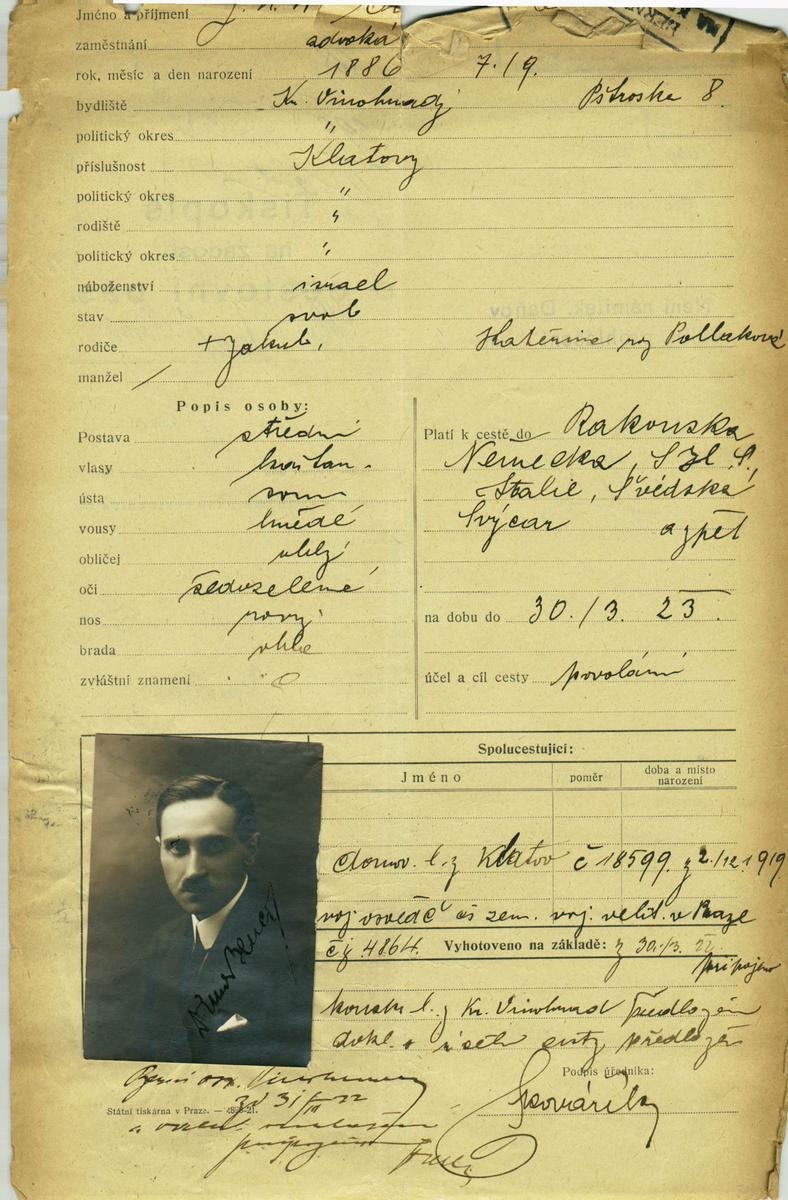 Jméno a příjmení
zaměstnání advoká
rok, měsíc a den narození 1886 7./9.
bydliště Kr. Vinohrady Pštroska 8.
politický okres "
příslušnost Klatovy
politický okres "
rodiště "
politický okres "
náboženství israel
stav svob
rodiče + Jakub, Kateřina roz Pollaková
manžel /
Popis osoby:
Postava střední
vlasy kaštan.
ústa soum
vousy hnědé
obličej oblý
oči šedozelené
nos rovný
brada oblá
zvláštní znamení 0
Platí k cestě do Rakouska
Německa, S.H.S.,
Italie, Švédska
Švýcar a zpět
na dobu do 30./3. 23.
účel a cíl cesty povolání
Spolucestující:
Jméno poměr doba a místo narození
domov. l. z Klatov č 18599 z 2./12.1919
voj osvědč čs zem. voj. velit. v Praze
č j. 4864. Vyhotoveno na základě: z 30./3.
připojeno
konskr l. z Kr. Vinohrad předložen
dokl. o účelu cesty předložen
Podpis úředníka:
Kovařík
Státní tiskárna v Praze.